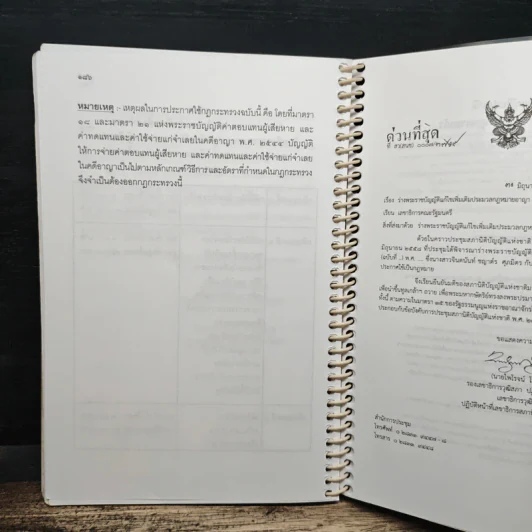 ๑๘๖
หมายเหตุ :- เหตุผลในการประกาศใช้กฎกระทรวงฉบับนี้ คือ โดยที่มาตรา
๑๘ และมาตรา ๒๑ แห่งพระราชบัญญัติค่าตอบแทนผู้เสียหาย และ
ค่าทดแทนและค่าใช้จ่ายแก่จำเลยในคดีอาญา พ.ศ. ๒๕๔๔ บัญญัติ
ให้การจ่ายค่าตอบแทนผู้เสียหาย และค่าทดแทนและค่าใช้จ่ายแก่จำเลย
ในคดีอาญาเป็นไปตามหลักเกณฑ์วิธีการและอัตราที่กำหนดในกฎกระทรวง
จึงจำเป็นต้องออกกฎกระทรวงนี้
ด่วนที่สุด
ที่
มิถุนา
เรื่อง ร่างพระราชบัญญัติแก้ไขเพิ่มเติมประมวลกฎหมายอาญา
เรียน เลขาธิการคณะรัฐมนตรี
สิ่งที่ส่งมาด้วย ร่างพระราชบัญญัติแก้ไขเพิ่มเติมประมวลกฎหม
ด้วยในคราวประชุมสภานิติบัญญัติแห่งชาติ
มิถุนายน ๒๕๕๘ ที่ประชุมได้พิจารณาร่างพระราชบัญญัติแก้
(ฉบับที่ ..) พ.ศ. .... ซึ่งนางสาวจินตนันท์ ชญาต์ร ศุภมิตร กับ
ประกาศใช้เป็นกฎหมาย
จึงเรียนยืนยันมติของสภานิติบัญญัติแห่งชาติมา
เพื่อนำขึ้นทูลเกล้าฯ ถวาย เพื่อพระมหากษัตริย์ทรงลงพระปรมา
ทั้งนี้ ตามความในมาตรา ๑๕ ของรัฐธรรมนูญแห่งราชอาณาจักร
ประกอบกับข้อบังคับการประชุมสภานิติบัญญัติแห่งชาติ พ.ศ. ๒
ขอแสดงความ
(นายไพโรจน์ โ
รองเลขาธิการวุฒิสภา ป
เลขาธิการวุฒิ
ปฏิบัติหน้าที่เลขาธิการสภา
สำนักการประชุม
โทรศัพท์
โทรสาร